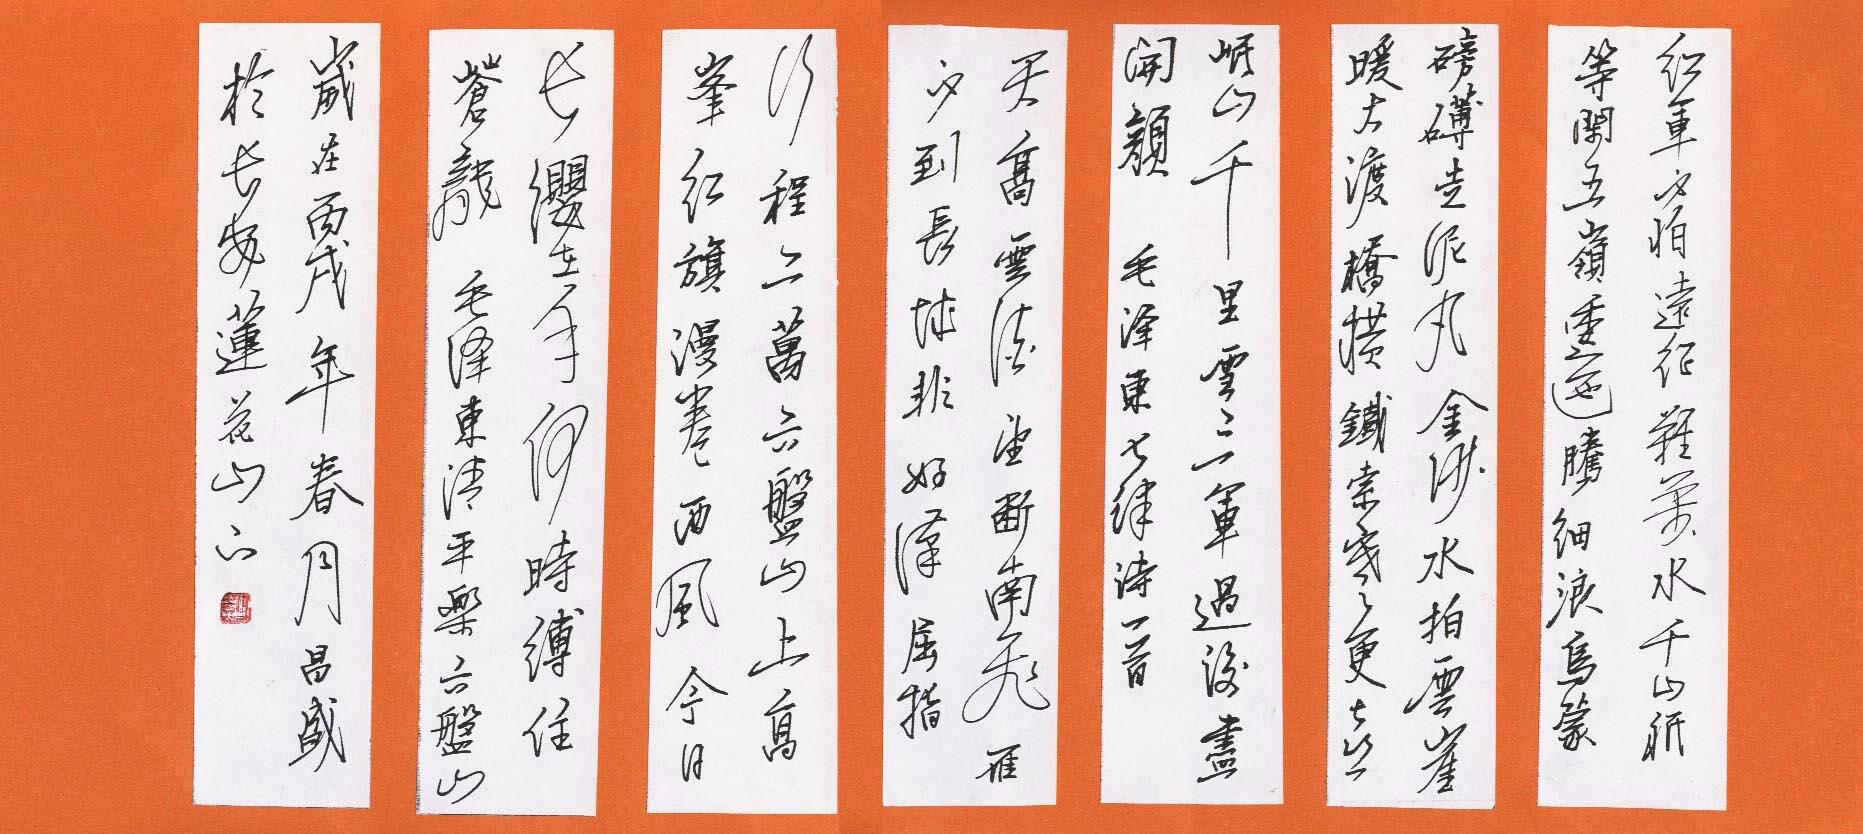 红軍不怕遠征難萬水千山祇
等閑五嶺逶迤騰細浪烏蒙
磅礴走泥丸金沙水拍雲崖
暖大渡橋横鐵索寒更喜
岷山千里雪三軍過後盡
開顔 毛泽東七律诗一首
天高雲淡望断南飛雁
不到長城非好漢屈指
行程二萬六盤山上高
峯红旗漫卷西風今日
长纓在手何時縛住
蒼龍 毛泽東清平樂六盤山
歲在丙戌年春月昌盛
於长安蓮花山下